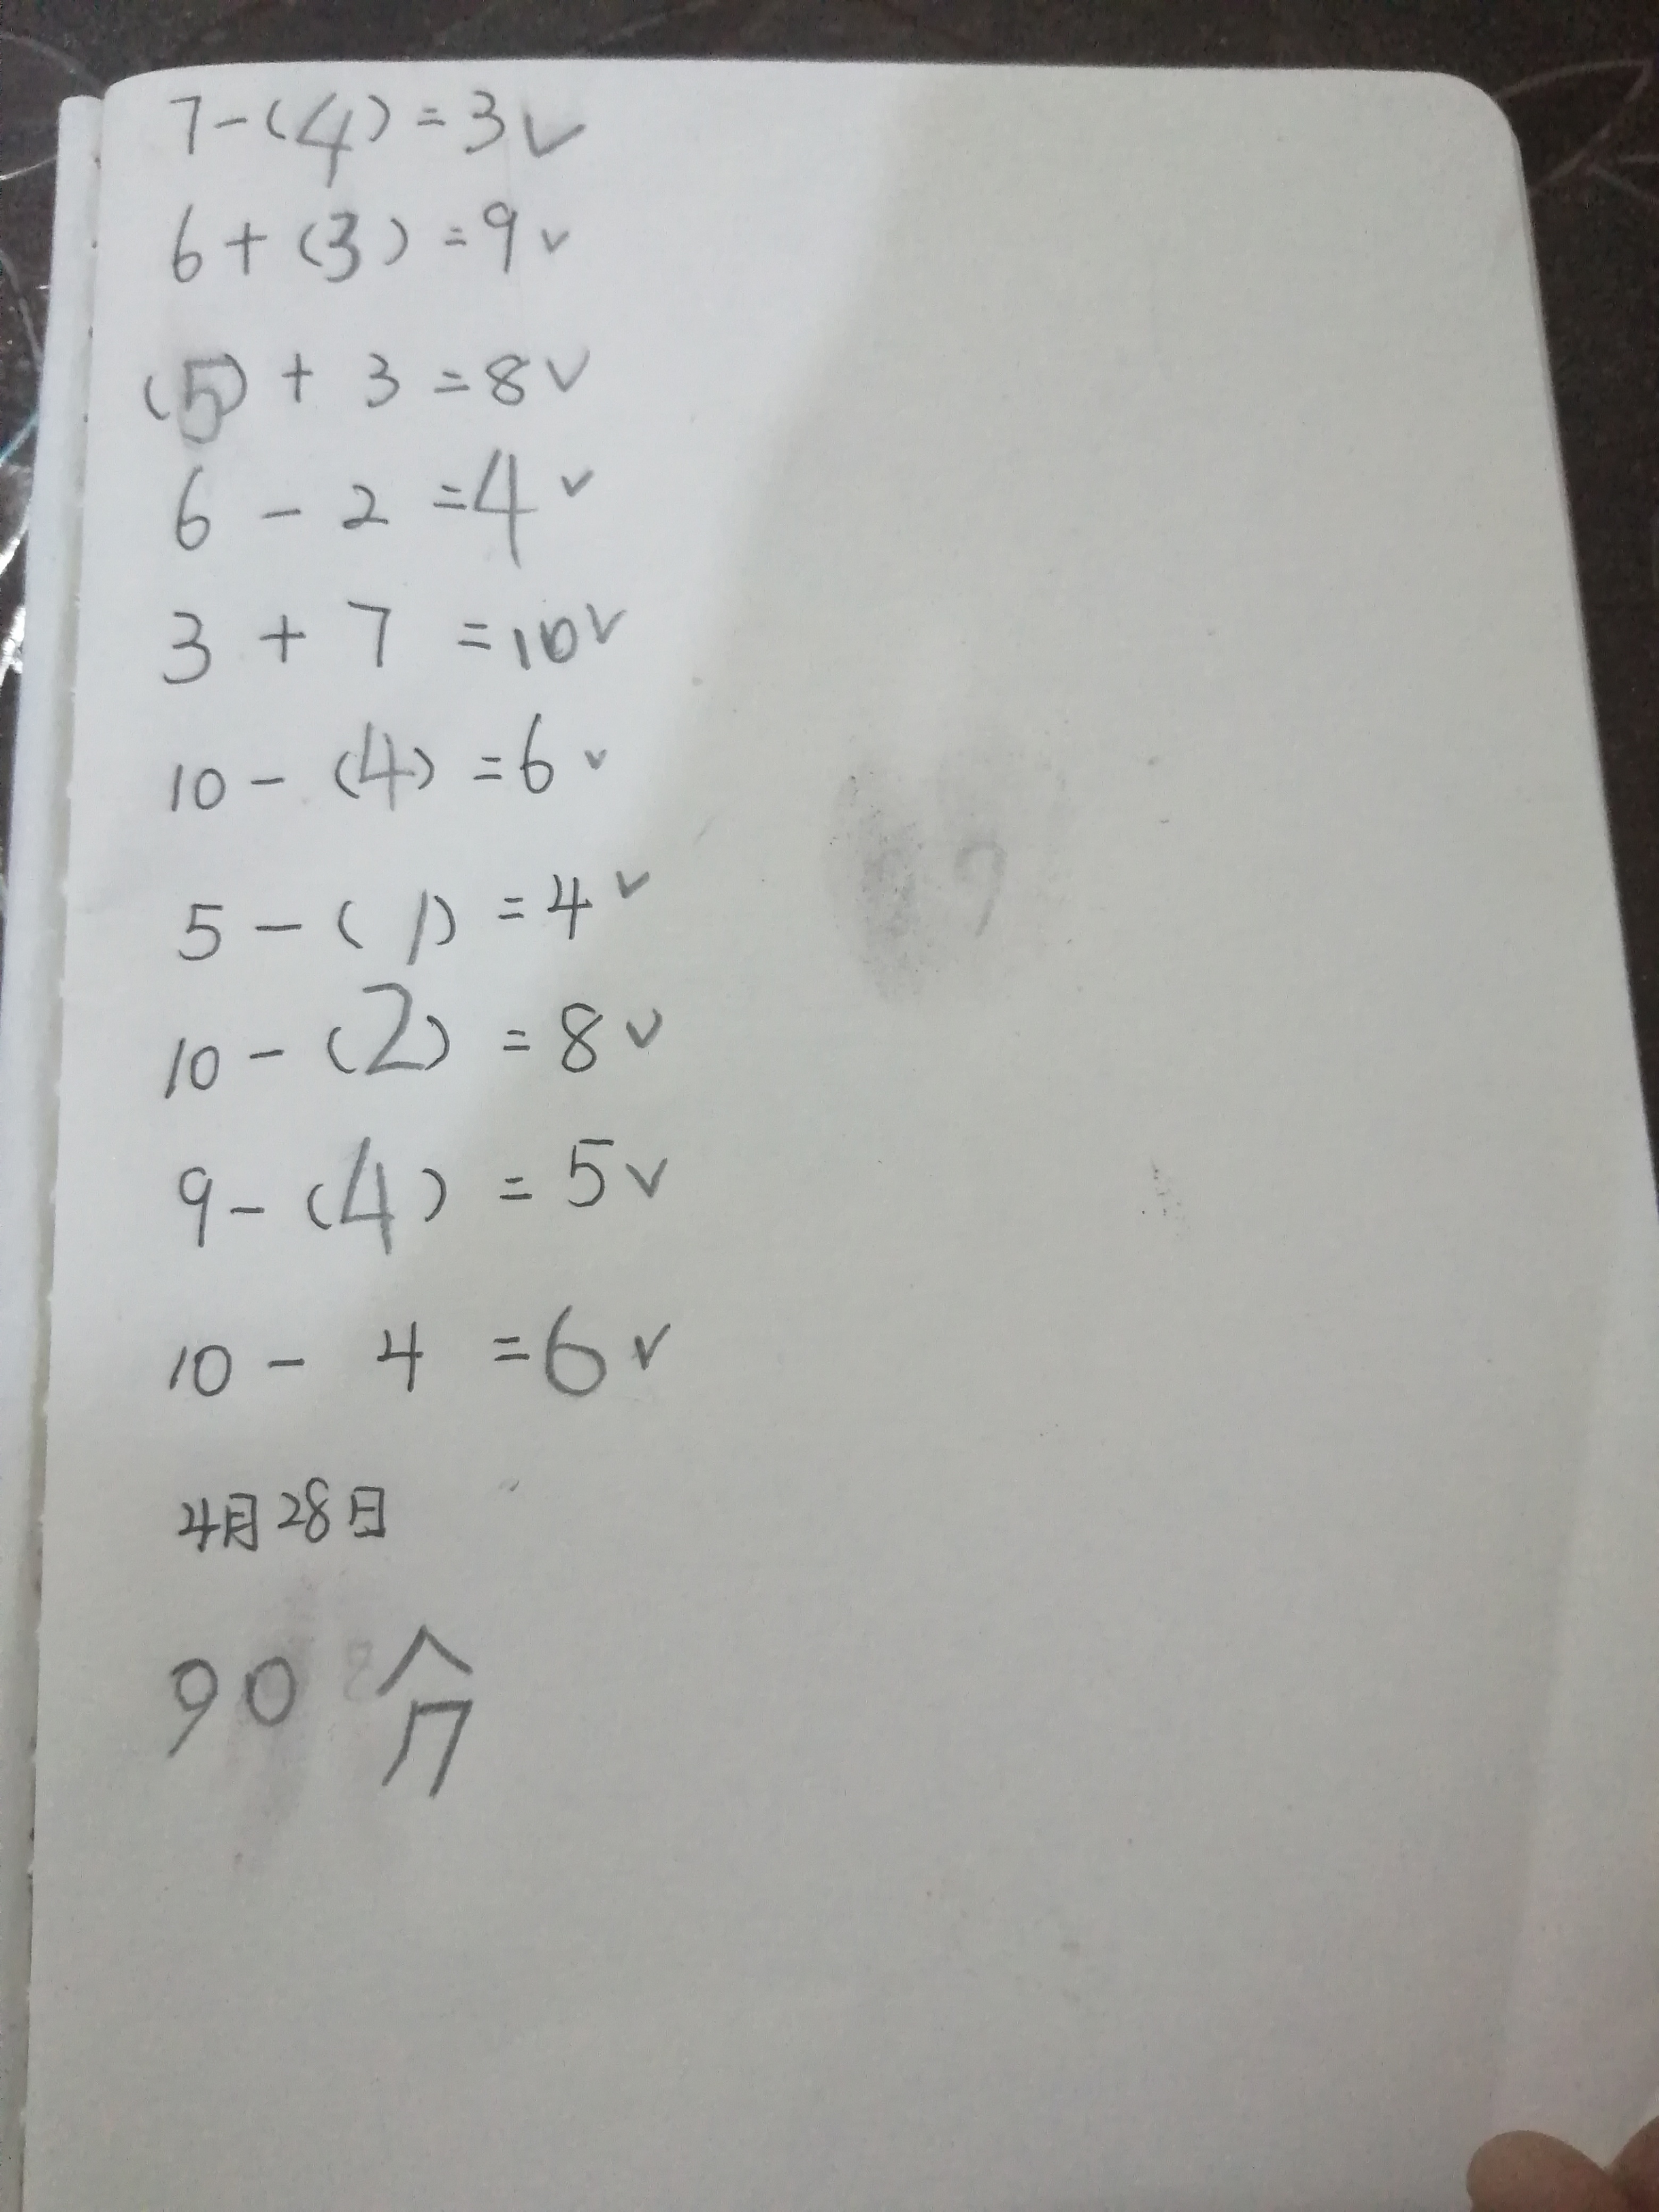 7-(4)=3✓
6+(3)=9✓
(5)+3=8✓
6-2=4✓
3+7=10✓
10-(4)=6✓
5-(1)=4✓
10-(2)=8✓
9-(4)=5✓
10-4=6✓
4月28日
90